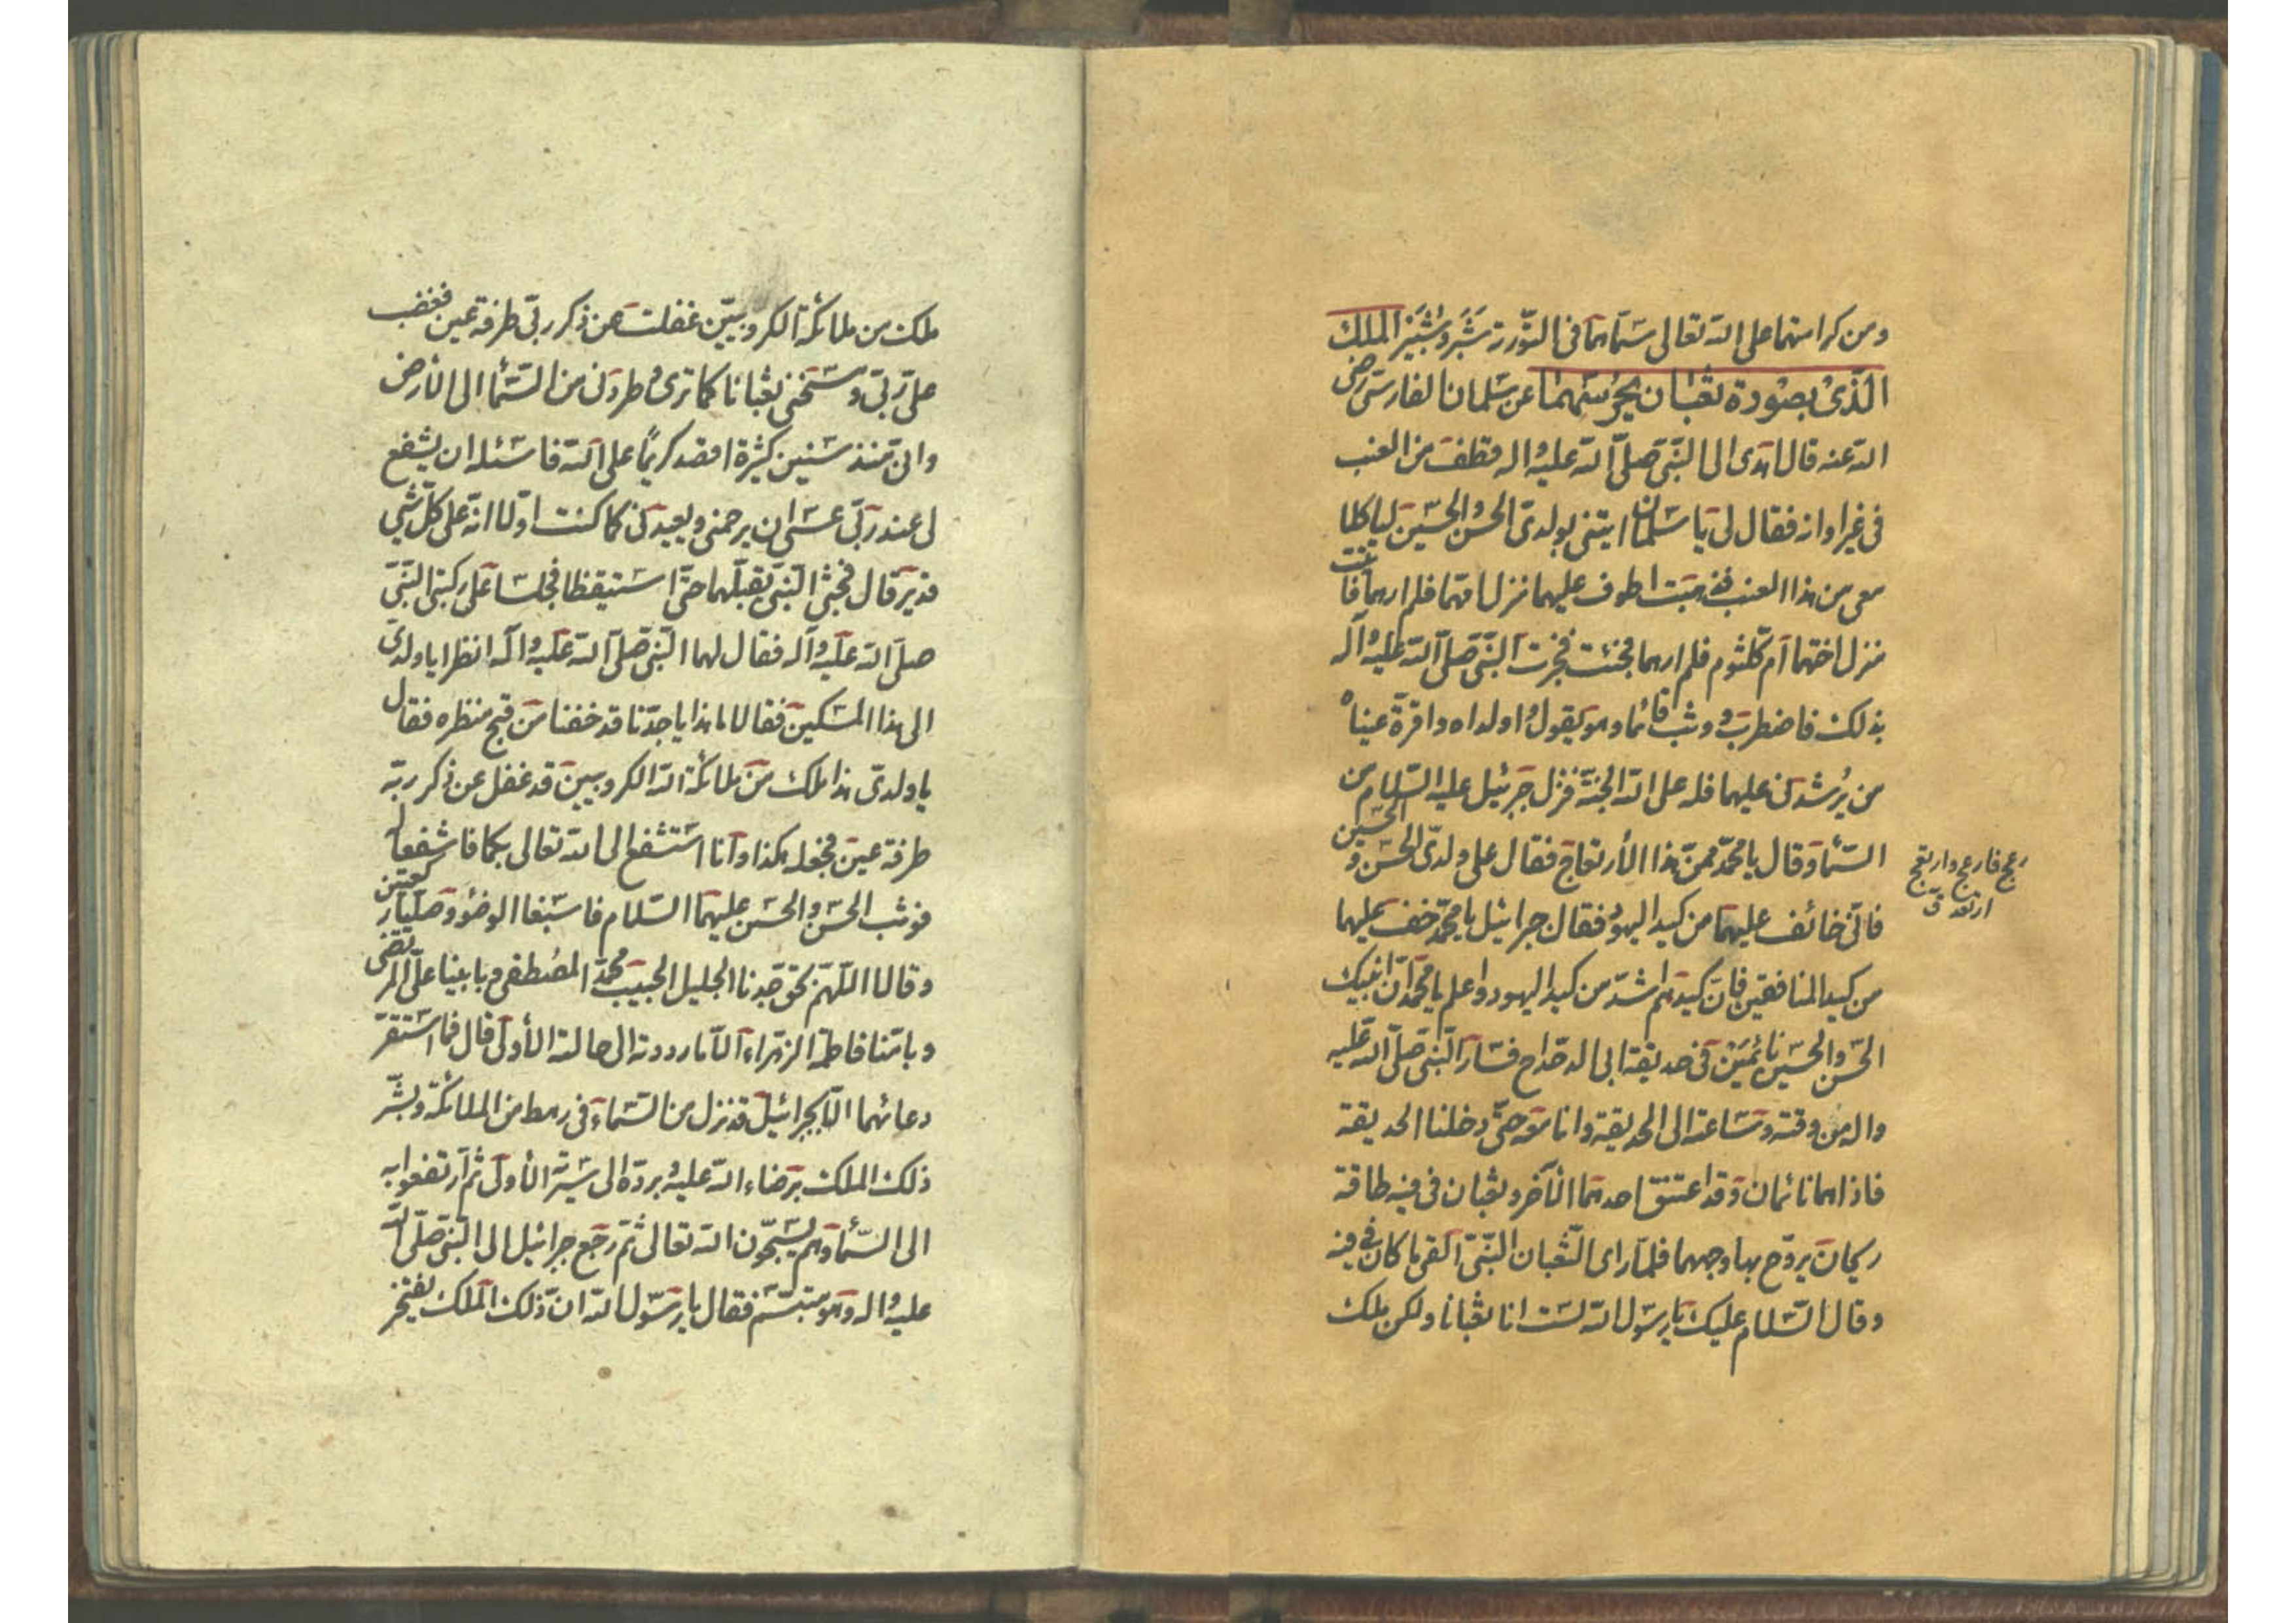 ومن كرامتهما على الله تعالى سماهما فى التورية شَبَّر وشَبير الملك
الّذى بصورة ثعبان يحرسهما عن سلمان الفارسى رضى
الله عنه قال اهدى الى النّبى صلّى الله عليه واله قطف من العنب
فى غير اوانه فقال لى يا سلمان ايتنى بولدىّ الحسن والحسين لياكلا
معى من هذا العنب فذهبت اطوف عليهما منزل امّهما فلم ارهما فاتيت
منزل اختهما ام كلثوم فلم ارهما فجئت فخبرت النّبى صلّى الله عليه وآله
بذلك فاضطرب ووثب قائما وهو يقول وا ولداه وا قرة عيناه
من يُرشدنى عليهما فله على الله الجنّة فنزل جبرئيل عليه السّلام من
السّماء وقال يا محمّد ممّن هذا الأرتعاج فقال على ولدىّ الحسن والحسين
رعج فارعج وارتعج
ارتعد ق
فانّى خائف عليهما من كيد اليهود فقال جبرائيل يا محمّد خف عليهما
من كيد المنافقين فانّ كيدهم اشدّ من كيد اليهود واعلم يا محمّد انّ ابنيك
الحسن والحسين نائمَيْن فى حديقة ابى الدحداح فسار النّبى صلّى الله عليه
واله من وقته وساعته الى الحديقة وانا معه حتّى دخلنا الحديقة
فاذا هما نائمان وقد اعتنق احدهما الآخر وثعبان فى فيه طاقة
ريحان يروّح بها وجههما فلمّا راى الثّعبان النّبىّ القى ما كان فى فيه
وقال السّلام عليك يا رسول الله لست انا ثعبانا ولكن ملك
ملك من ملائكة الكروبييّن غفلت عن ذكر ربّى طرفة عين فغضب
علىّ ربّى ومسخنى ثعبانا كما ترى وطردنى من السّماء الى الأرض
وانى منذ سنين كثيرة اقصد كريمًا على الله فاسئله ان يشفع
لى عند ربّى عسى ان يرحمنى ويعيدنى كما كنت اوّلا انّه على كلّ شيى
قدير قال فجثى النّبى يقبّلهما حتّى استيقظا فجلسا على ركبتى النّبىّ
صلّى الله عليه وآله فقال لهما النّبى صلّى الله عليه وآله انظرا يا ولدىّ
الى هذا المسكين فقالا ما هذا يا جدّنا قد خفنا من قبح منظره فقال
يا ولدىّ هذا ملك من ملائكة الله الكروبيين قد غفل عن ذكر ربّه
طرفة عين فجعله هكذا وانا استشفع الى الله تعالى بكما فاشفعا له
فوثب الحسن والحسين عليهما السّلام فاسبغا الوضوء وصلّيا ركعتين
وقالا اللّهمّ بحق جدنا الجليل الحبيب محمّد المصطفى وبابينا علىّ المرتضى
وبامّنا فاطمة الزهراء الّا ما رددته الى حالته الأولى قال فما استقرّ
دعائهما الّا بجبرائيل قد نزل من السّماء فى رهط من الملائكة وبشّر
ذلك الملك برضاء الله عليه وبردّه الى سيرته الأولى ثم ارتفعوا به
الى السّماء وهم يسبّحون الله تعالى ثم رجع جبرائيل الى النّبى صلّى الله
عليه واله وهو متبسّم فقال يا رسول الله ان ذلك الملك يفتخر